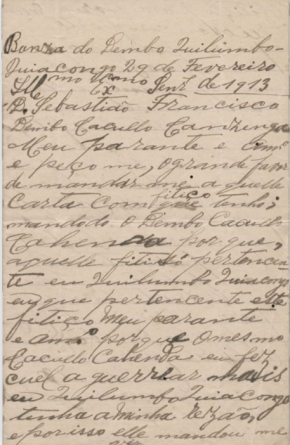 Banza do Dembo Quilumbo-
Quiacongo 29 de Fevereiro
Ill.mo Ex.mo Senr. de 1913
D. Sebastião Francisco
Dembo Cacullo Cazuenga
Meu parante e Am.o
e peço me, o grande favor
de mandar me a quelle
Carta Com fitiço tenho;
mandado o Dembo Cacullo
Cahenda por que,
aquelle fitisó pertencen
te eu Quilumbo Quiacongo
eu que pertencente este
fitiço, Meu parante
e am.o porque Omesmo
Caculo Cahenda eu fez
a guerrear mais
eu Quilumbo Quiacongo
tinha a minha rezão,
e por isso elle mandou me